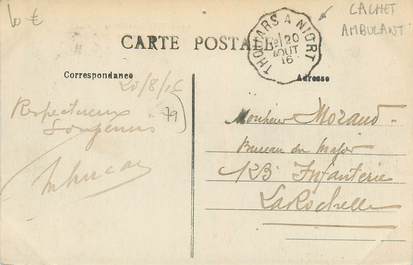 10 €
CACHET
AMBULANT
THOUARS A NIORT
20
AOUT
16
CARTE POSTALE
Correspondance
Adresse
20/8/16
Respectueux
79
Monsieur Morand
Bureau du Major
123 Infanterie
La Rochelle